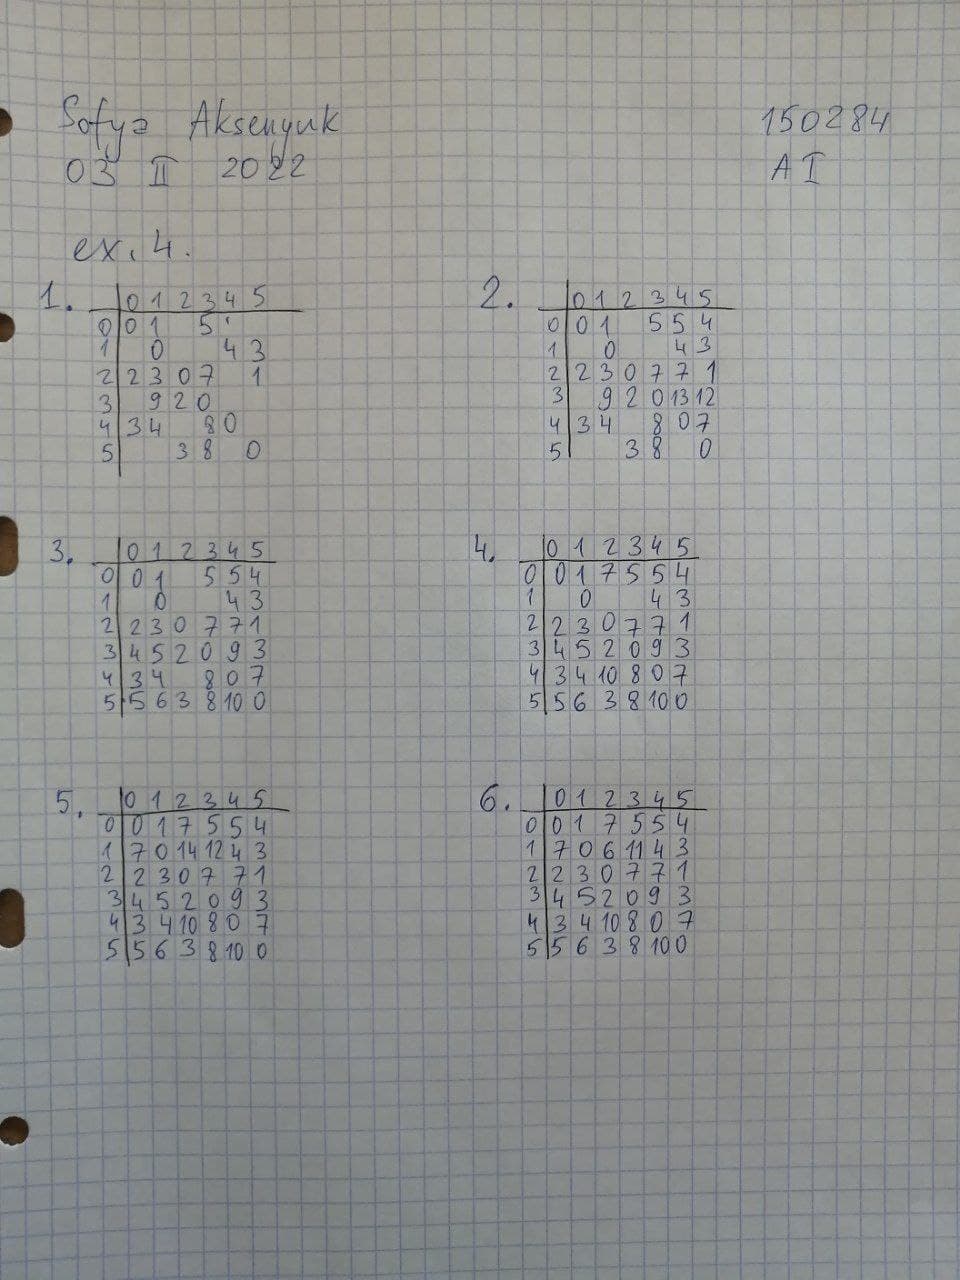 Sofya Aksenyuk 150284
03 II 2022 AI
ex. 4.
1.
0 1 2 3 4 5
0 0 1 5
1 0 4 3
2 2 3 0 7 1
3 9 2 0
4 3 4 8 0
5 3 8 0
2.
0 1 2 3 4 5
0 0 1 5 5 4
1 0 4 3
2 2 3 0 7 7 1
3 9 2 0 13 12
4 3 4 8 0 7
5 3 8 0
3.
0 1 2 3 4 5
0 0 1 5 5 4
1 0 4 3
2 2 3 0 7 7 1
3 4 5 2 0 9 3
4 3 4 8 0 7
5 5 6 3 8 10 0
4.
0 1 2 3 4 5
0 0 1 7 5 5 4
1 0 4 3
2 2 3 0 7 7 1
3 4 5 2 0 9 3
4 3 4 10 8 0 7
5 5 6 3 8 10 0
5.
0 1 2 3 4 5
0 0 1 7 5 5 4
1 7 0 14 12 4 3
2 2 3 0 7 7 1
3 4 5 2 0 9 3
4 3 4 10 8 0 7
5 5 6 3 8 10 0
6.
0 1 2 3 4 5
0 0 1 7 5 5 4
1 7 0 6 11 4 3
2 2 3 0 7 7 1
3 4 5 2 0 9 3
4 3 4 10 8 0 7
5 5 6 3 8 10 0